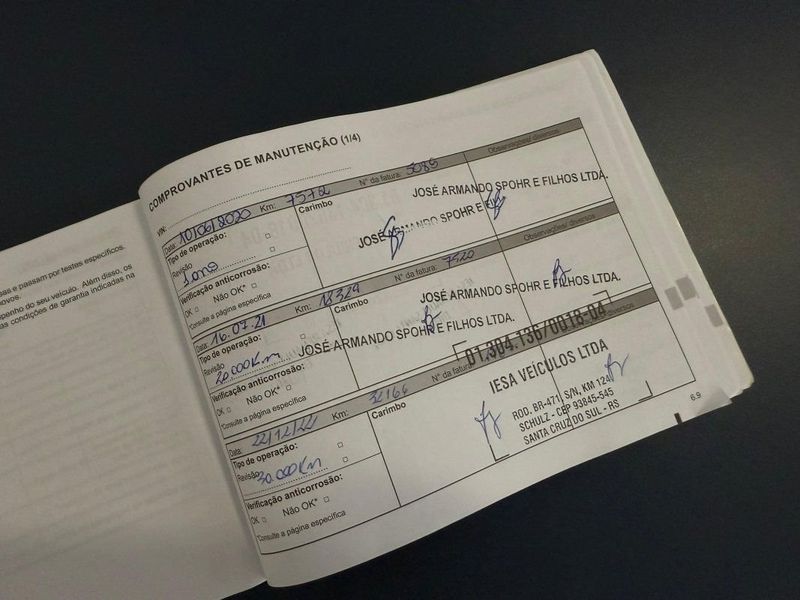 as e passam por testes específicos.
ovos.
penho do seu veículo. Além disso, os
as condições de garantia indicadas na
COMPROVANTES DE MANUTENÇÃO (1/4)
VIN:
Data: 10/06/2020 Km: 7572 N° da fatura: 5085 Observações/ diversos
Tipo de operação: Carimbo
JOSÉ ARMANDO SPOHR E FILHOS LTDA.
Revisão
1 ano
JOSÉ ARMANDO SPOHR E
Verificação anticorrosão:
OK Não OK*
*Consulte a página específica
Data: 16.07.21 Km: 18329 N° da fatura: 7520 Observações/ diversos
Tipo de operação: Carimbo
JOSÉ ARMANDO SPOHR E FILHOS LTDA.
Revisão
20.000Km
JOSÉ ARMANDO SPOHR E FILHOS LTDA.
Verificação anticorrosão:
OK Não OK*
*Consulte a página específica
Data: 22/12/22 Km: 32166 N° da fatura diversos
Tipo de operação: Carimbo
01.304.136/0018-04
IESA VEÍCULOS LTDA
Revisão
30.000Km
ROD. BR-471, S/N, KM 124
SCHULZ - CEP 93845-545
SANTA CRUZ DO SUL - RS
Verificação anticorrosão:
OK Não OK*
*Consulte a página específica
6.9